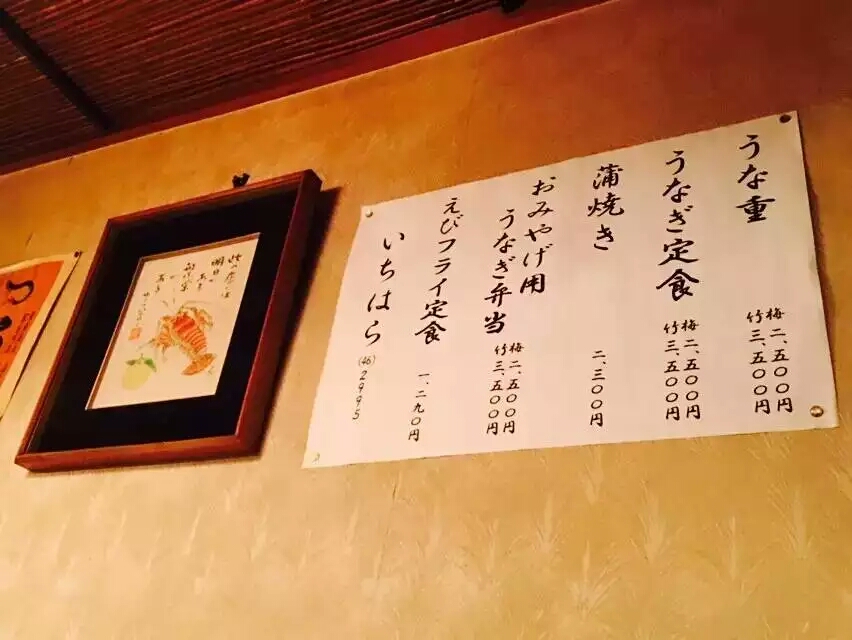 うな重
梅 二、五〇〇円
竹 三、五〇〇円
うなぎ定食
梅 二、五〇〇円
竹 三、五〇〇円
蒲焼き
二、三〇〇円
おみやげ用
うなぎ弁当
梅 二、五〇〇円
竹 三、五〇〇円
えびフライ定食
一、二九〇円
いちはら
(46)2995